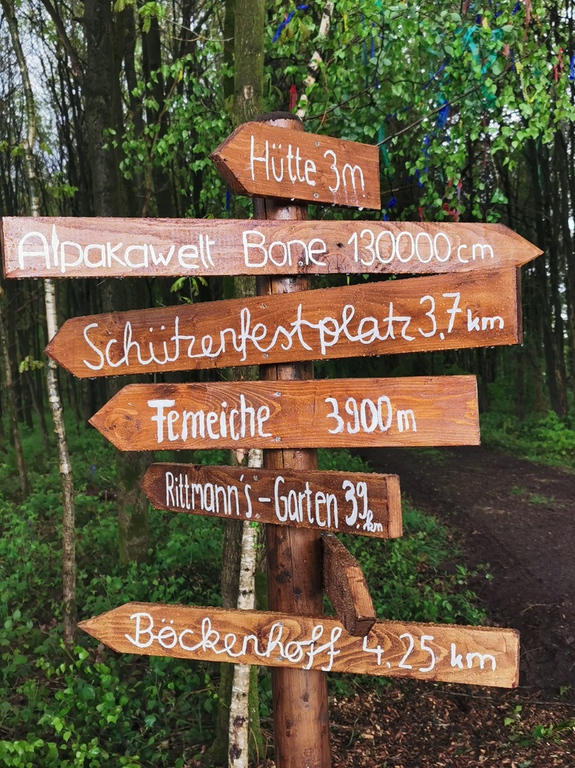 Hütte 3m
Alpakawelt Bone 130000cm
Schützenfestplatz 3,7 km
Femeiche 3900m
Rittmann's.-Garten 3,9 km
Böckenhoff 4,25 km